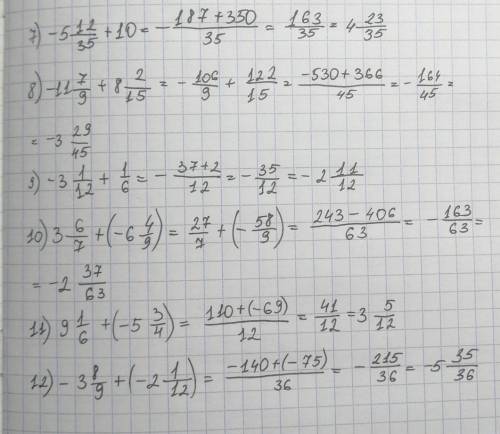 7) -5 12/35 + 10 = -187+350/35 = 163/35 = 4 23/35
8) -11 7/9 + 8 2/15 = -106/9 + 122/15 = -530+366/45 = -164/45 =
= -3 29/45
9) -3 1/12 + 1/6 = -37+2/12 = -35/12 = -2 11/12
10) 3 6/7 + (-6 4/9) = 27/7 + (-58/9) = 243-406/63 = -163/63 =
= -2 37/63
11) 9 1/6 + (-5 3/4) = 110+(-69)/12 = 41/12 = 3 5/12
12) -3 8/9 + (-2 1/12) = -140+(-75)/36 = -215/36 = -5 35/36